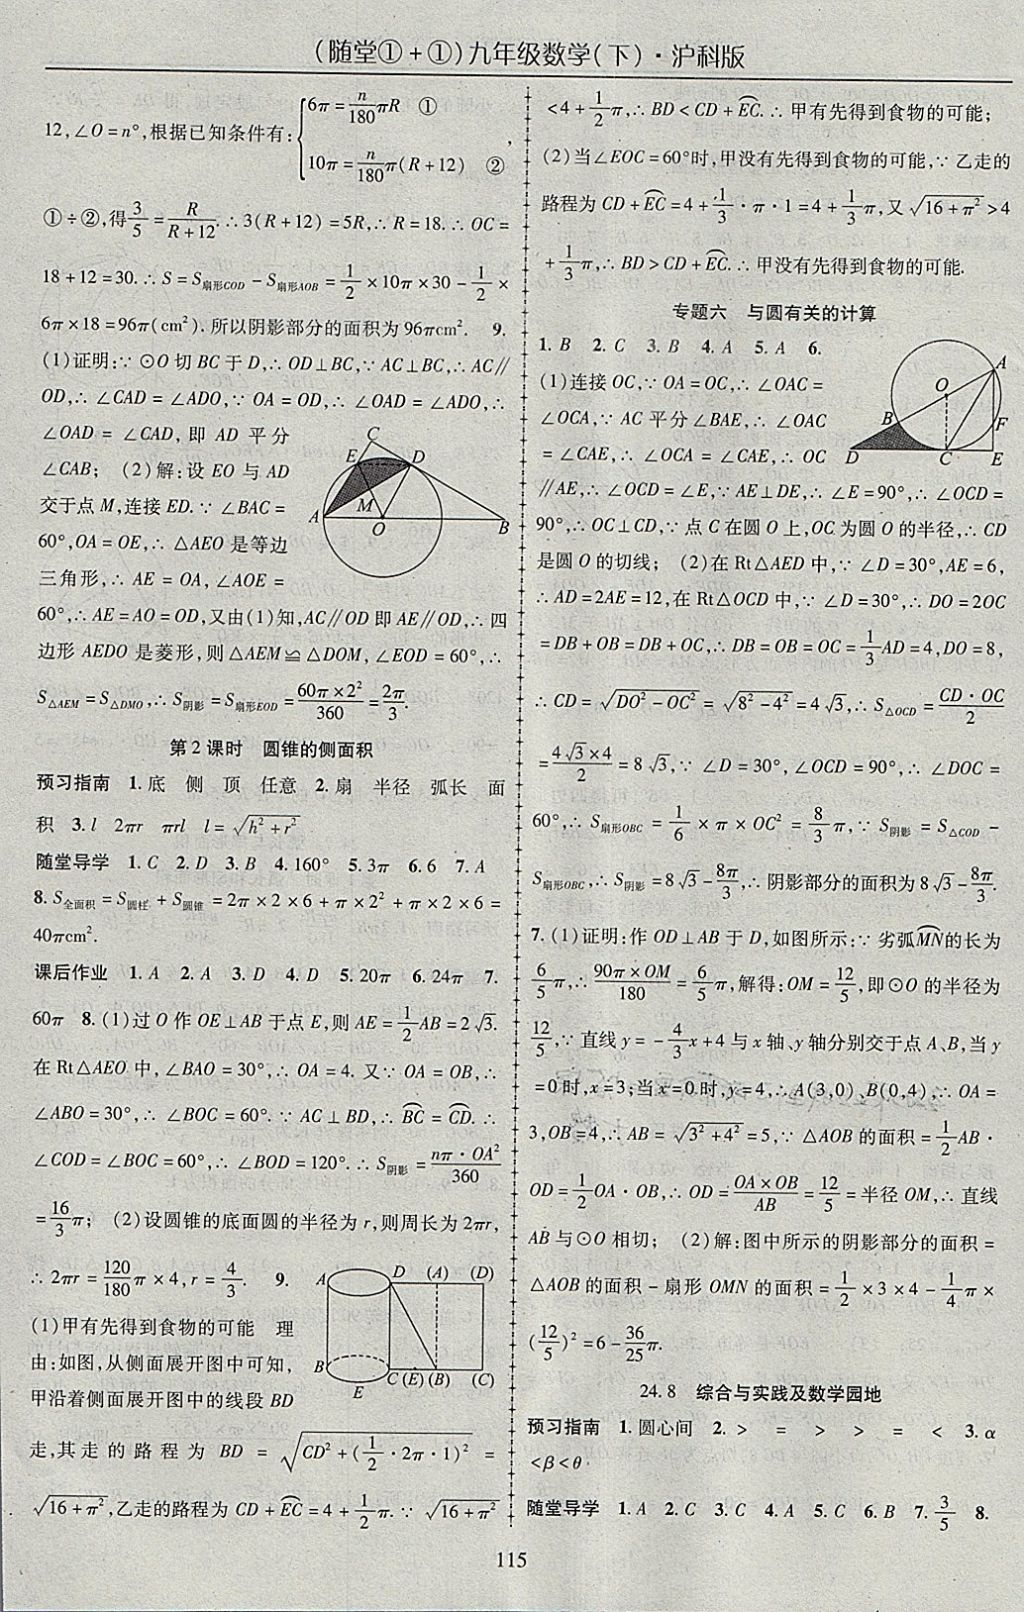 (随堂①+①)九年级数学(下)·沪科版
12,∠O=n°,根据已知条件有:{6π=n/180 πR ① 10π=n/180 π(R+12) ②,
①÷②,得3/5=R/(R+12).∴3(R+12)=5R,∴R=18.∴OC=
18+12=30.∴S=S扇形COD-S扇形AOB=1/2×10π×30-1/2×
6π×18=96π(cm²).所以阴影部分的面积为96πcm². 9.
(1)证明:∵⊙O切BC于D,∴OD⊥BC,∵AC⊥BC,∴AC∥
OD,∴∠CAD=∠ADO,∵OA=OD,∴∠OAD=∠ADO,∴
∠OAD=∠CAD,即AD平分
∠CAB; (2)解:设EO与AD
交于点M,连接ED.∵∠BAC=
60°,OA=OE,∴△AEO是等边
三角形,∴AE=OA,∠AOE=
60°,∴AE=AO=OD,又由(1)知,AC∥OD即AE∥OD,∴四
边形AEDO是菱形,则△AEM≌△DOM,∠EOD=60°,∴
S△AEM=S△DMO,∴S阴影=S扇形EOD=60π×2²/360=2π/3.
C
E
D
M
A
O
B
第2课时 圆锥的侧面积
预习指南 1.底 侧 顶 任意 2.扇 半径 弧长 面
积 3.l 2πr πrl l=√(h²+r²)
随堂导学 1.C 2.D 3.B 4.160° 5.3π 6.6 7.A
8.S全面积=S圆柱+S圆锥=2π×2×6+π×2²+π×2×6=
40πcm².
课后作业 1.A 2.A 3.D 4.D 5.20π 6.24π 7.
60π 8.(1)过O作OE⊥AB于点E,则AE=1/2AB=2√3.
在Rt△AEO中,∠BAO=30°,∴OA=4.又∵OA=OB,∴
∠ABO=30°,∴∠BOC=60°.∵AC⊥BD,∴B͡C=C͡D.∴
∠COD=∠BOC=60°,∴∠BOD=120°.∴S阴影=nπ·OA²/360
=16/3π; (2)设圆锥的底面圆的半径为r,则周长为2πr,
∴2πr=120/180π×4,r=4/3. 9.
(1)甲有先得到食物的可能 理
由:如图,从侧面展开图中可知,
甲沿着侧面展开图中的线段BD
走,其走的路程为BD=√(CD²+(1/2·2π·1)²)=
√(16+π²),乙走的路程为CD+E͡C=4+1/2π.∵√(16+π²)
A
D (A) (D)
B
E
C (E) (B) (C)
<4+1/2π,∴BD<CD+E͡C.∴甲有先得到食物的可能;
(2)当∠EOC=60°时,甲没有先得到食物的可能,∵乙走的
路程为CD+E͡C=4+1/3·π·1=4+1/3π,又√(16+π²)>4
+1/3π,∴BD>CD+E͡C.∴甲没有先得到食物的可能.
专题六 与圆有关的计算
1.B 2.C 3.B 4.A 5.A 6.
(1)连接OC,∵OA=OC,∴∠OAC=
∠OCA,∵AC平分∠BAE,∴∠OAC
=∠CAE,∴∠OCA=∠CAE,∴OC
∥AE,∴∠OCD=∠E,∵AE⊥DE,∴∠E=90°,∴∠OCD=
90°,∴OC⊥CD,∵点C在圆O上,OC为圆O的半径,∴CD
是圆O的切线; (2)在Rt△AED中,∵∠D=30°,AE=6,
∴AD=2AE=12,在Rt△OCD中,∵∠D=30°,∴DO=2OC
=DB+OB=DB+OC,∴DB=OB=OC=1/3AD=4,DO=8,
∴CD=√(DO²-OC²)=√(8²-4²)=4√3,∴S△OCD=CD·OC/2
=4√3×4/2=8√3,∵∠D=30°,∠OCD=90°,∴∠DOC=
60°,∴S扇形OBC=1/6×π×OC²=8/3π,∵S阴影=S△COD-
S扇形OBC,∴S阴影=8√3-8π/3,∴阴影部分的面积为8√3-8π/3.
A
O
B
F
D
C
E
7.(1)证明:作OD⊥AB于D,如图所示:∵劣弧M͡N的长为
6/5π,∴90π×OM/180=6/5π,解得:OM=12/5,即⊙O的半径为
12/5,∵直线y=-4/3x+4与x轴、y轴分别交于点A、B,当y
=0时,x=3;当x=0时,y=4,∴A(3,0)、B(0,4),∴OA=
3,OB=4,∴AB=√(3²+4²)=5,∵△AOB的面积=1/2AB·
OD=1/2OA·OB,∴OD=OA×OB/AB=12/5=半径OM,∴直线
AB与⊙O相切; (2)解:图中所示的阴影部分的面积=
△AOB的面积-扇形OMN的面积=1/2×3×4-1/4π×
(12/5)²=6-36/25π.
24.8 综合与实践及数学园地
预习指南 1.圆心间 2.> = > > = < 3.α
<β<θ
随堂导学 1.A 2.C 3.C 4.A 5.C 6.B 7.3/5 8.
115